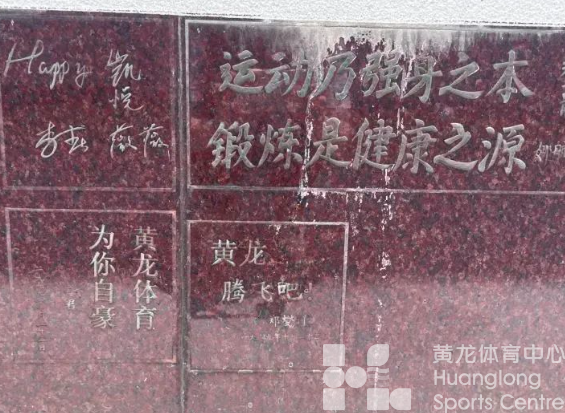 Happy 凯
悦
李 薇薇
运动乃强身之本
锻炼是健康之源
黄龙体育
为你自豪
黄龙
腾飞吧
黄龙体育中心
Huanglong
Sports Centre